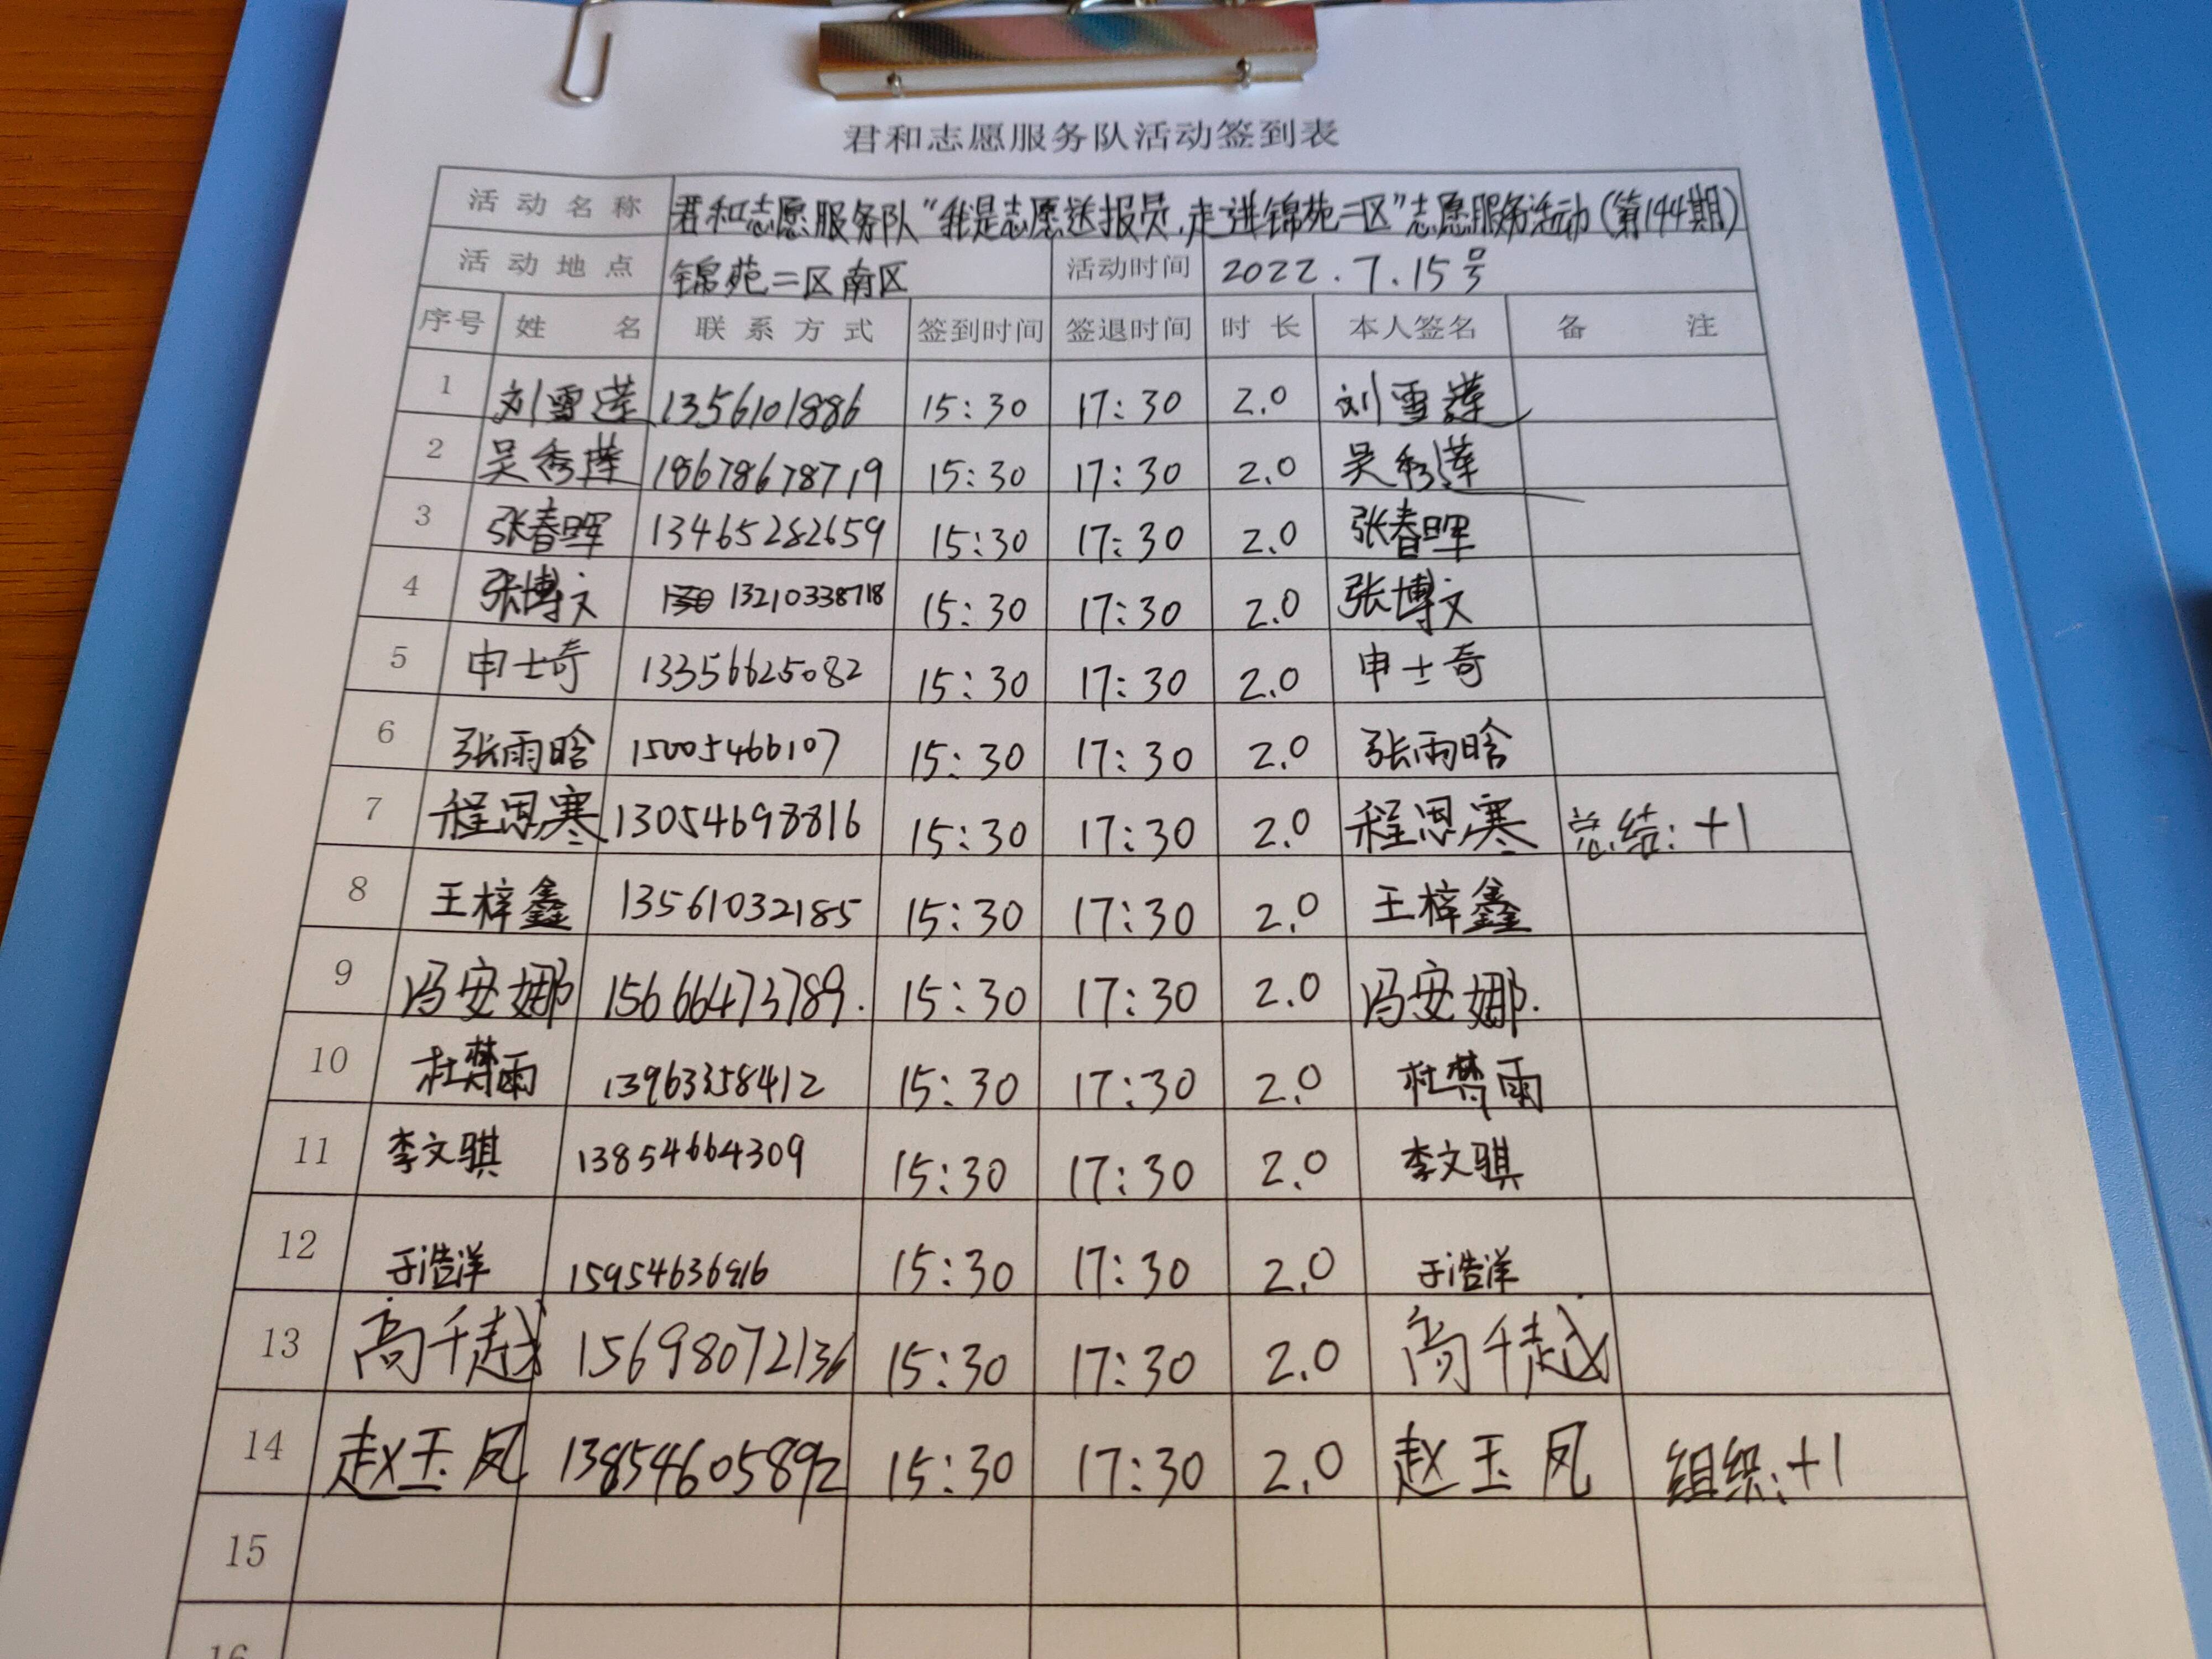 君和志愿服务队活动签到表
活动名称 君和志愿服务队“我是志愿送报员,走进锦苑二区”志愿服务活动(第144期)
活动地点 锦苑二区南区 活动时间 2022.7.15号
序号 姓名 联系方式 签到时间 签退时间 时长 本人签名 备注
1 刘雪莲 1356101886 15:30 17:30 2.0 刘雪莲
2 吴秀莲 18678678719 15:30 17:30 2.0 吴秀莲
3 张春晖 13465282659 15:30 17:30 2.0 张春晖
4 张博文 13210338718 15:30 17:30 2.0 张博文
5 申士奇 13356625082 15:30 17:30 2.0 申士奇
6 张雨晗 15005466107 15:30 17:30 2.0 张雨晗
7 程思寒 13054698816 15:30 17:30 2.0 程思寒 总结:+1
8 王梓鑫 13561032185 15:30 17:30 2.0 王梓鑫
9 冯安娜 15666473789. 15:30 17:30 2.0 冯安娜.
10 杜梦雨 13963358412 15:30 17:30 2.0 杜梦雨
11 李文骐 13854664309 15:30 17:30 2.0 李文骐
12 于浩洋 15:30 17:30 2.0 于浩洋
13 高千越 15698072136 15:30 17:30 2.0 高千越
14 赵玉凤 13854605892 15:30 17:30 2.0 赵玉凤 组织:+1
15
16